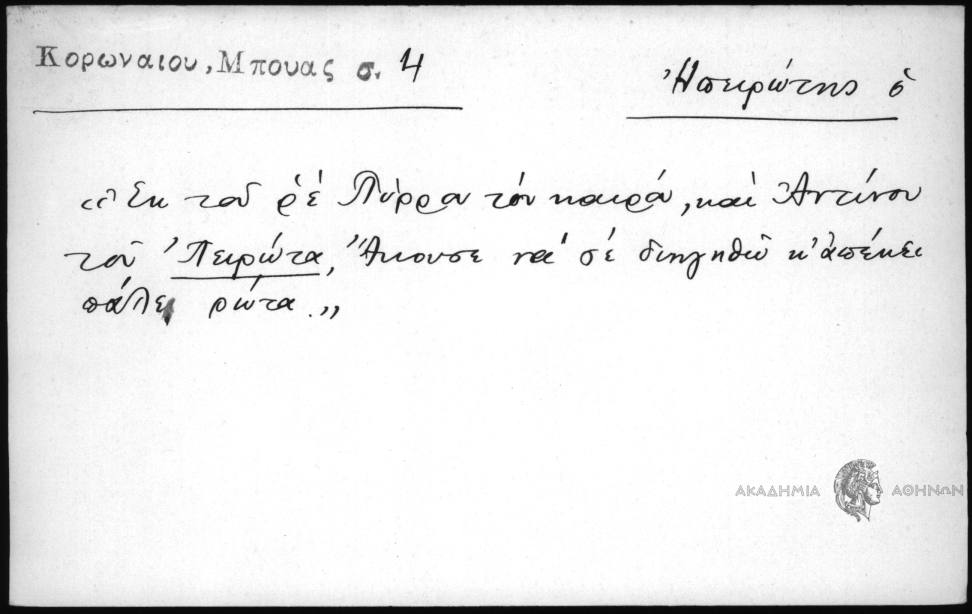 Κορωναιου, Μπουας σ. 4
Ἠπειρώτης ὁ
«Ἐκ τοῦ ῥὲ Πύρρα τὸν καιρό, καὶ Ἀντίνου
τοῦ Ἠπειρώτα, Ἄκουσε νὰ σὲ διηγηθῶ κ' ἀπέκει
πάλε ρώτα.»
ΑΚΑΔΗΜΙΑ ΑΘΗΝΩΝ